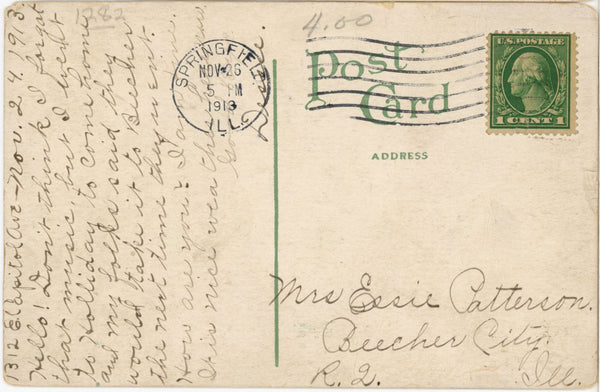 1282
4.00
Post
Card
ADDRESS
U.S. POSTAGE
1 CENT 1
SPRINGFIELD
NOV 25
5 PM
1913
ILL.
1312 E Capitol Ave - Nov. 24, 1913.
Hello! Don't think I forgot
that music, but I went
to Holliday to come home
and my folks said they
would take it to Beecher
the next time they went.
How are you? I am
It is nice wea
Dessie.
Mrs Essie Patterson.
Beecher City.
R. 2. Ill.